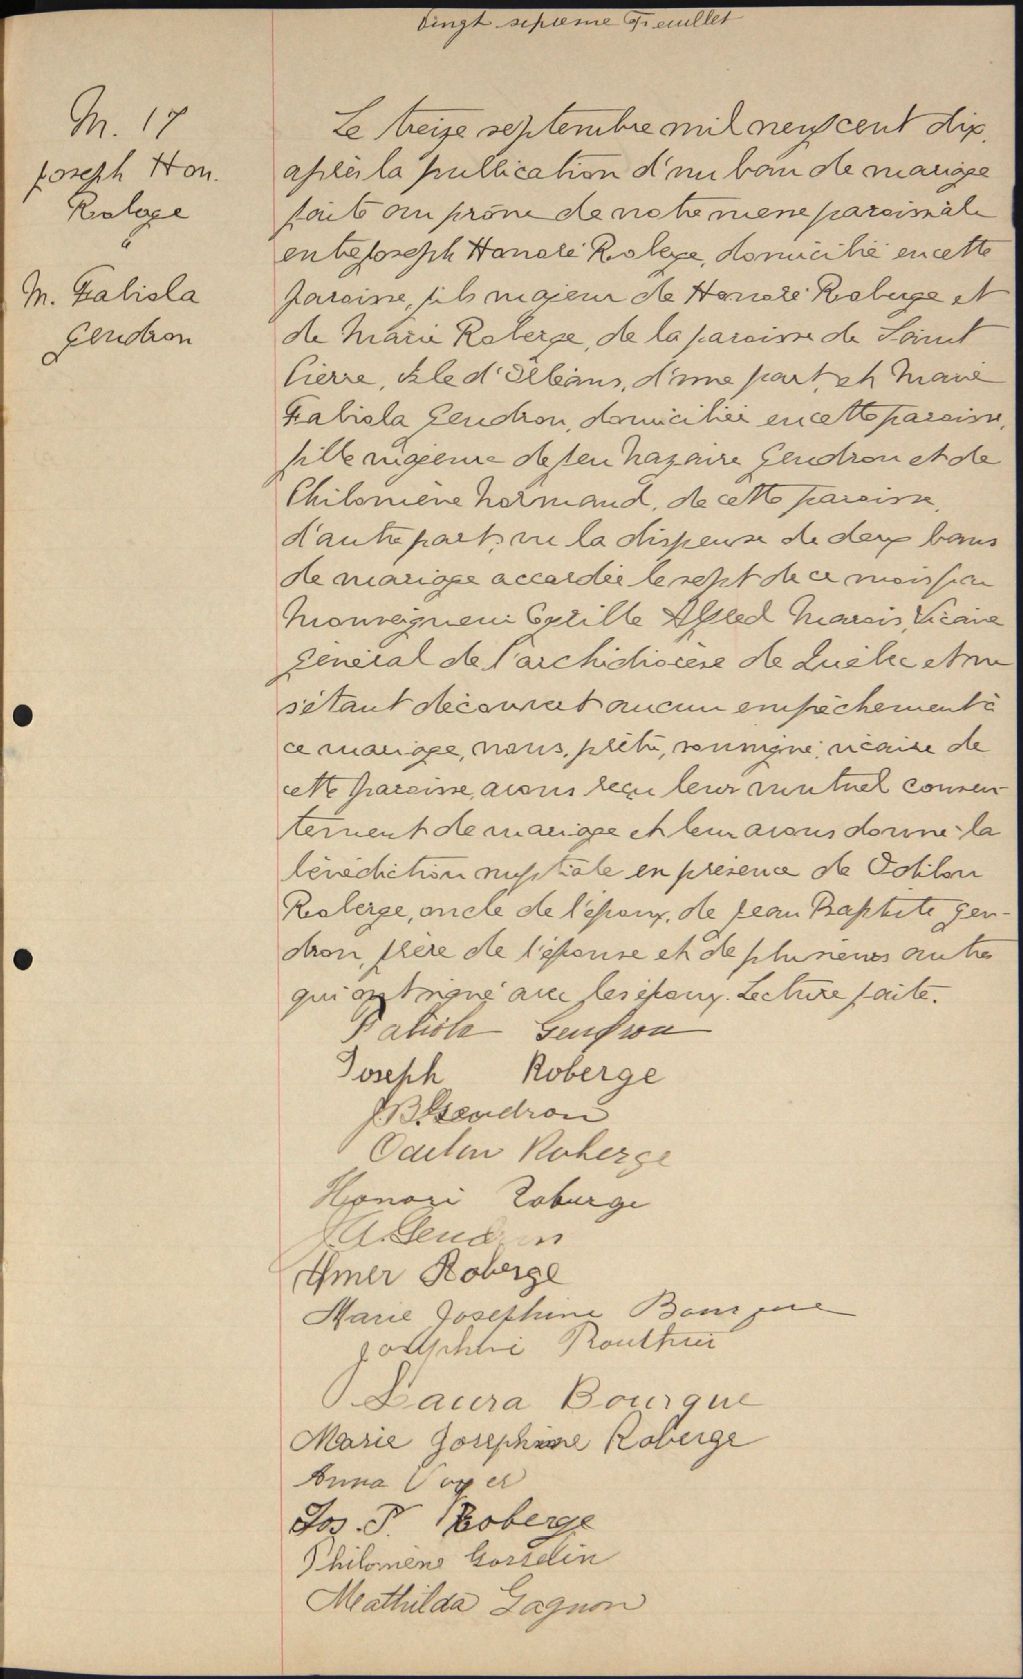 Vingt septieme Feuillet
M. 17
Joseph Hon.
Roberge
"
M. Fabiola
Gendron
Le treize septembre mil neuf cent dix,
après la publication d'un ban de mariage
faite au prône de notre messe paroissiale
entre Joseph Honoré Roberge, domicilié en cette
paroisse, fils majeur de Honoré Roberge et
de Marie Roberge, de la paroisse de Saint
Pierre, Isle d'Orléans, d'une part, et Marie
Fabiola Gendron, domiciliée en cette paroisse,
fille majeure de feu Nazaire Gendron et de
Philomène Normand, de cette paroisse,
d'autre part; vu la dispense de deux bans
de mariage accordée le sept de ce mois par
Monseigneur Cyrille Alfred Marois, Vicaire
Général de l'archidiocèse de Québec et ne
s'étant découvert aucun empêchement à
ce mariage, nous, prêtre, soussigné, vicaire de
cette paroisse, avons reçu leur mutuel consen-
tement de mariage et leur avons donné la
bénédiction nuptiale en présence de Odilon
Roberge, oncle de l'époux, de Jean Baptiste Gen-
dron, frère de l'épouse et de plusieurs autres
qui ont signé avec les époux. Lecture faite.
Fabiola Gendron
Joseph Roberge
J.B. Gendron
Odilon Roberge
Honoré Roberge
J.A. Gendron
Omer Roberge
Marie Josephine Bourque
Josephine Routhier
Laura Bourque
Marie Josephine Roberge
Anna Voyer
Jos. P. Roberge
Philomène Gosselin
Mathilda Gagnon